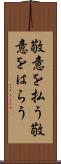 敬意を払う敬
意をはらう